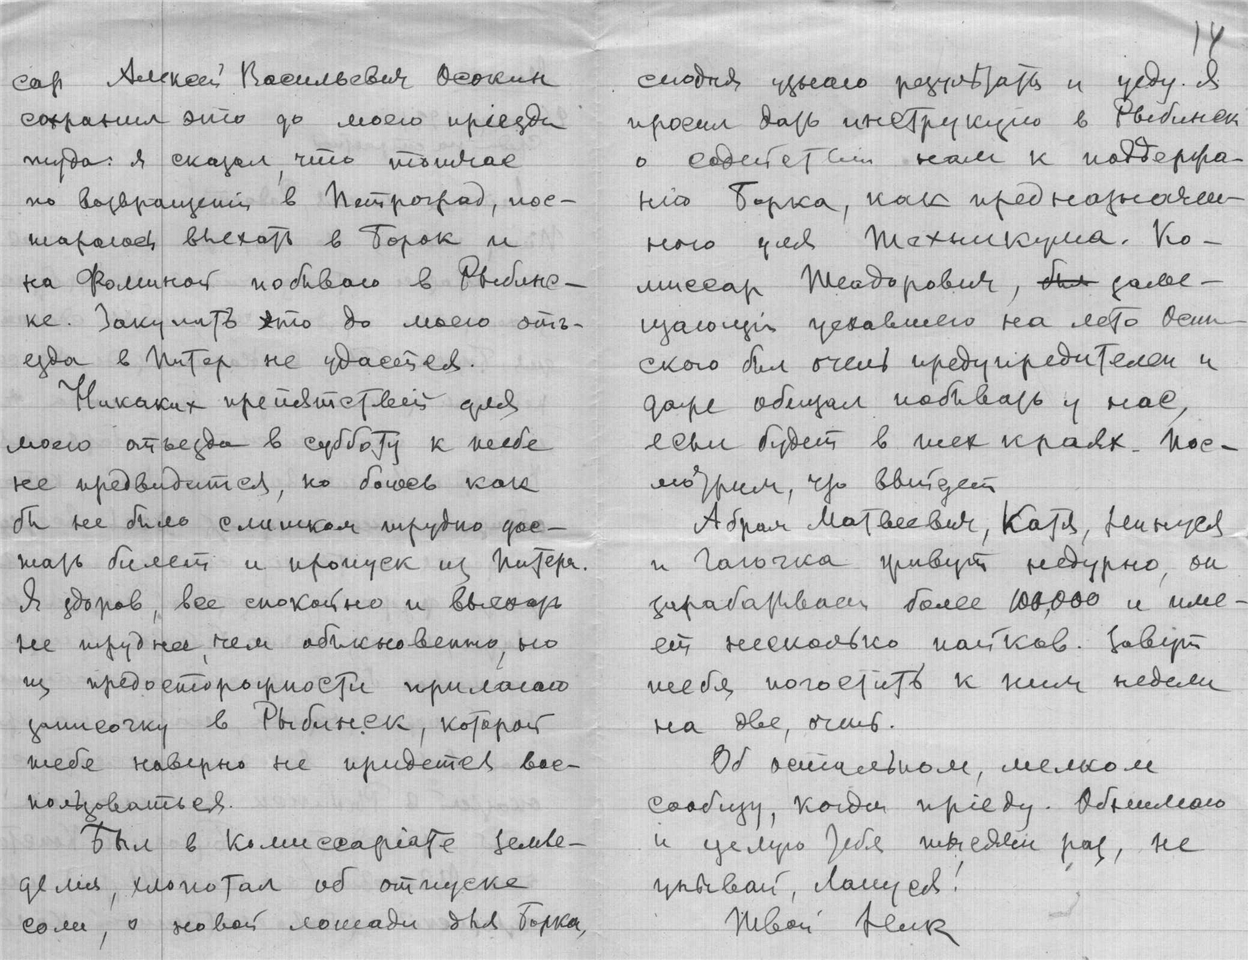 сар Алексей Васильевич Осокин
сохранил это до моего приезда
туда: я сказал, что тотчас
по возвращении в Петроград, пос-
тараюсь выехать в Борок и
на Фоминой побываю в Рыбинс-
ке. Закупить это до моего отъ-
езда в Питер не удается.
Никаких препятствий для
моего отъезда в субботу к тебе
не предвидится, но боюсь как
бы не было слишком трудно дос-
тать билет и пропуск из Питера.
Я здоров, все спокойно и выехать
не труднее, чем обыкновенно, но
из предосторожности прилагаю
записочку в Рыбинск, которой
тебе наверно не придется вос-
пользоваться.
Был в Комиссаріате Земле-
делия, хлопотал об отпуске
соли, о новой лошади для Борка,
14
сегодня узнаю результат и уеду. Я
просил дать инструкцию в Рыбинск
о содействіи нам к поддержа-
нію Борка, как предназначен-
ного для Техникума. Ко-
миссар Теодорович, был заме-
щающій уехавшего на лето Осин-
ского был очень предупредителен и
даже обещал побывать у нас,
если будет в тех краях. Пос-
мотрим, что выйдет
Абрам Матвеевич, Катя,
и Галочка живут недурно, он
зарабатывает более 100,000 и име-
ет несколько пайков. Зовут
тебя погостить к ним недели
на две, очень.
Об остальном, мелком
сообщу, когда пріеду. Обнимаю
и целую Тебя тысячи раз, не
унывай, Лапуся!
Твой Ник